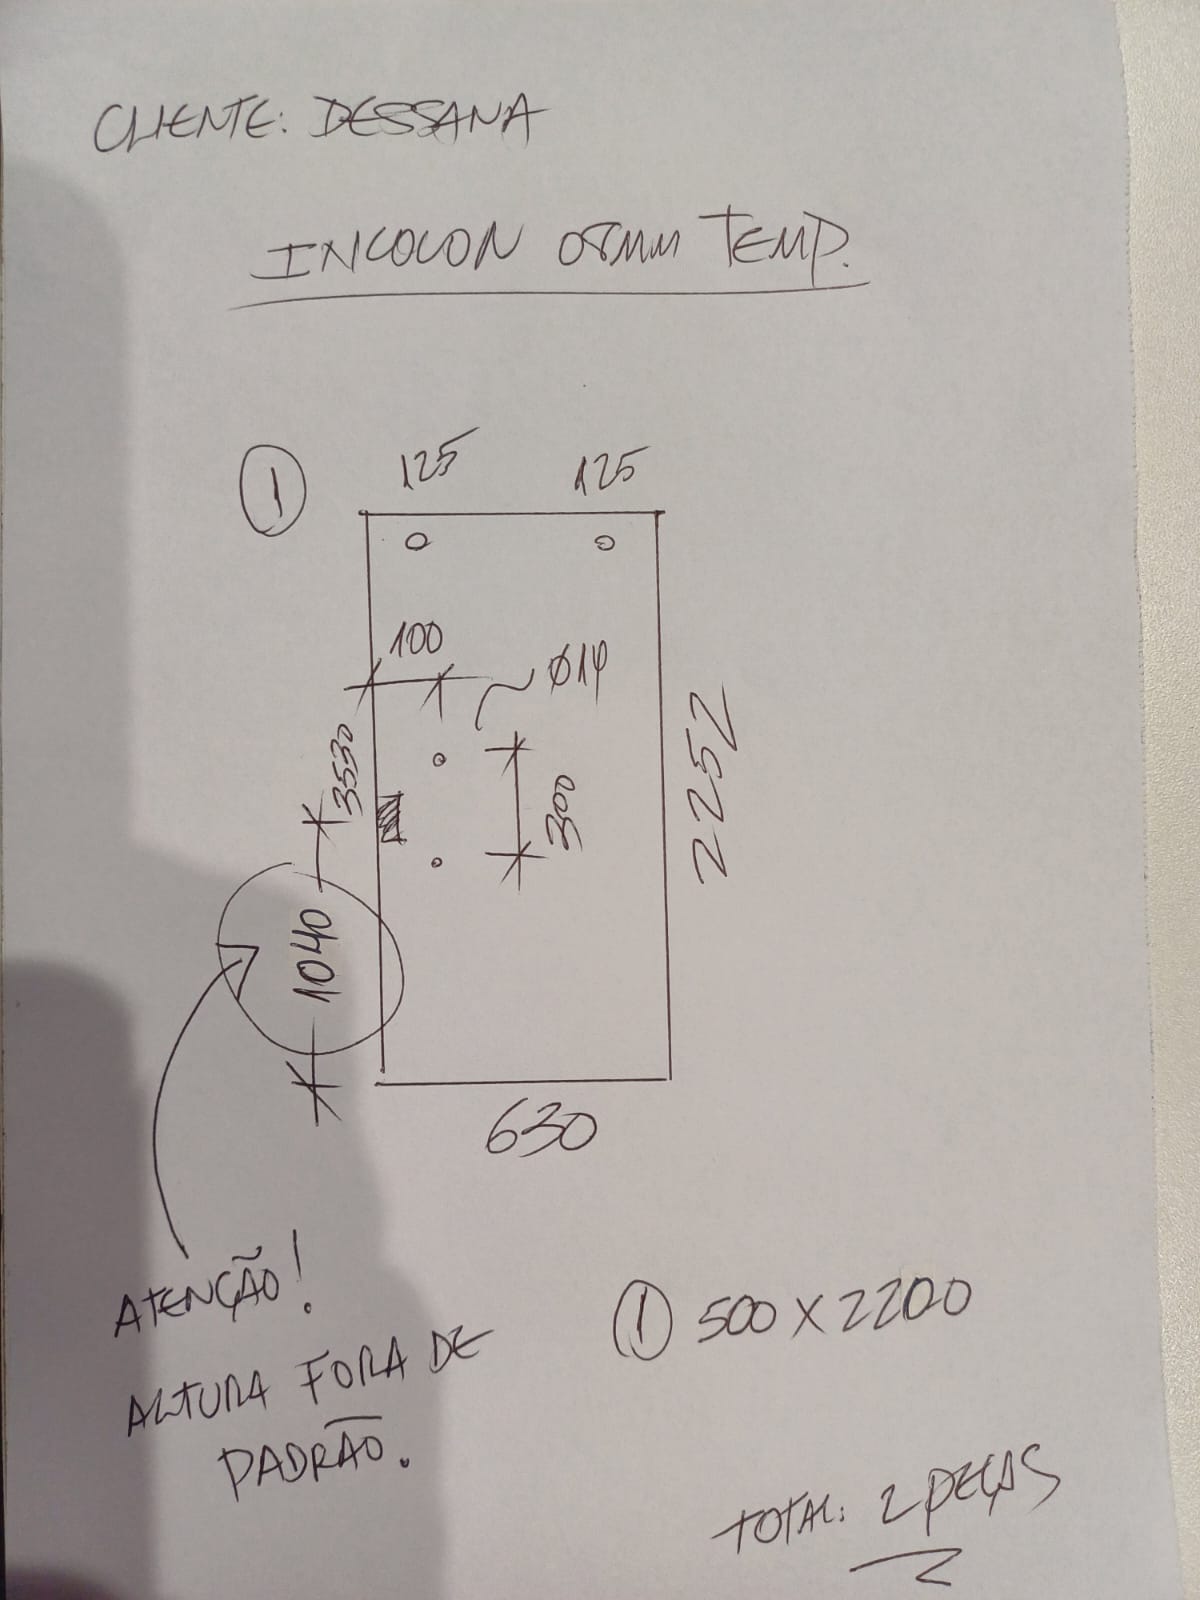 CLIENTE: DESSANA
INCOLON 08MM TEMP.
1
125 125
100
Ø14
3530
300
2252
1040
630
ATENÇÃO!
ALTURA FORA DE
PADRÃO.
1 500 X 2200
TOTAL: 2 PEÇAS